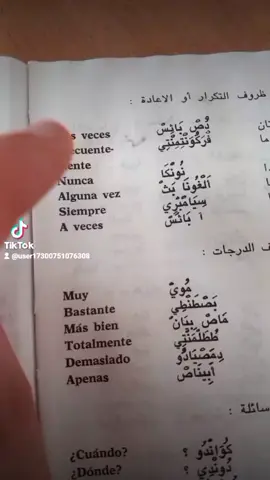 ظروف التكرار أو الاعادة :
s veces دُصْ بَاثِسْ
ecuente- فْرِكُوَنْتِمِنْتِي
ente
Nunca نُونْكَا
Alguna vez أَلْغُونَا بَثْ
Siempre سِيَامْبْرِي
A veces أَ بَاثَسْ
TikTok
@user17300751076308
ف الدرجات :
Muy مُويْ
Bastante بَصْطَنْطِي
Más bien مَاصْ بِيَانْ
Totalmente طُطَلْمَنْتِي
Demasiado دِمَصْيَادُو
Apenas أَبِينَاصْ
سائلة :
¿Cuándo? كُوَانْدُو ؟
¿Dónde? دُونْدِي ؟